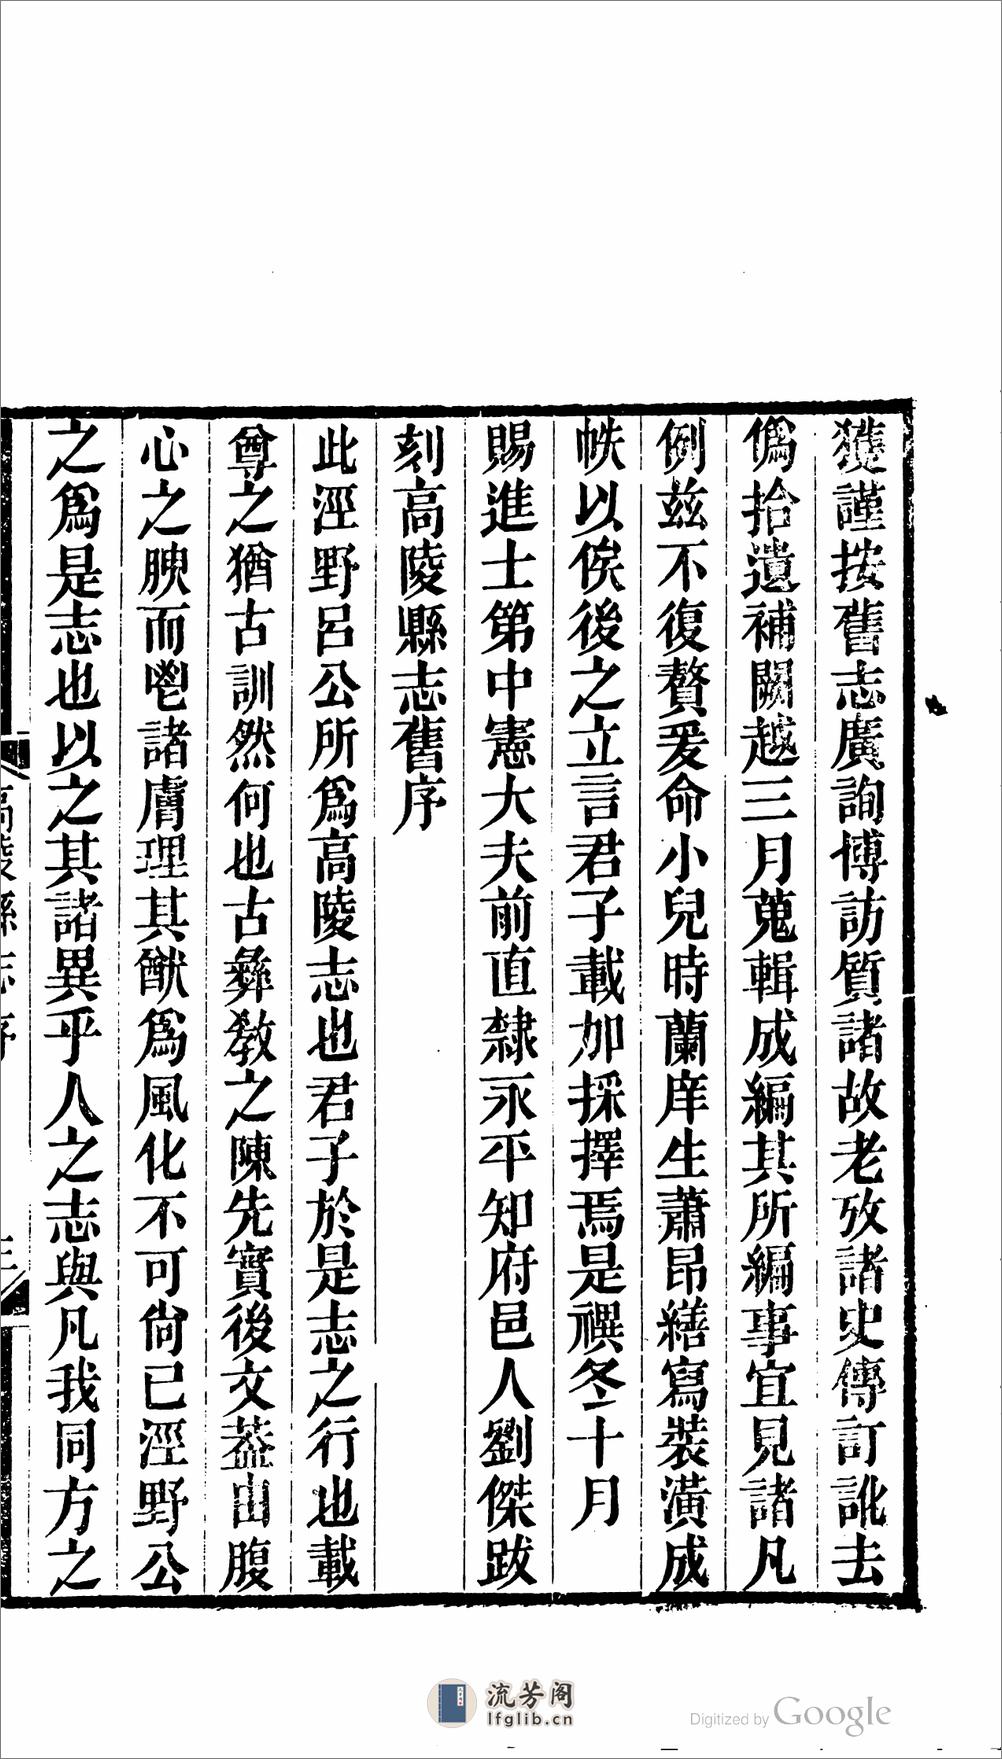 獲謹按舊志廣詢博訪質諸故老攷諸史傳訂訛去
僞拾遺補闕越三月蒐輯成編其所編事宜見諸凡
例兹不復贅爰命小兒時蘭庠生蕭昂繕寫裝潢成
帙以俟後之立言君子載加採擇焉是禩冬十月
賜進士第中憲大夫前直隸永平知府邑人劉傑跋
刻高陵縣志舊序
此涇野呂公所爲高陵志也君子於是志之行也載
尊之猶古訓然何也古彝敎之陳先實後文葢由腹
心之腴而鬯諸膚理其猷爲風化不可尙已涇野公
之爲是志也以之其諸異乎人之志與凡我同方之
高陵縣志序
三
流芳阁
lfglib.cn
Digitized by Google